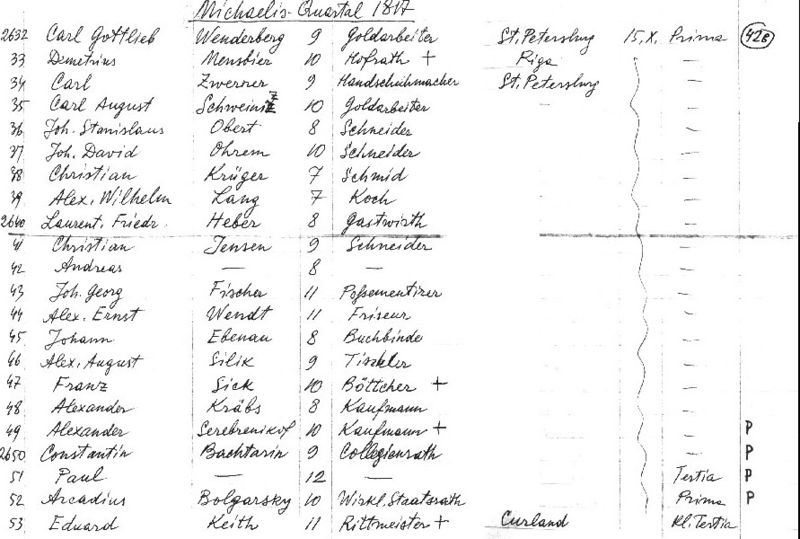 Michaelis-Quartal 1817
2632 Carl Gottlieb Wenderberg 9 Goldarbeiter St. Petersburg 15. X. Prima 42e
33 Demetrius Mensbier 10 Hofrath + Riga —
34 Carl Zwerner 9 Handschuhmacher St. Petersburg —
35 Carl August Schweinitz 10 Goldarbeiter —
36 Joh. Stanislaus Obert 8 Schneider —
37 Joh. David Ohrem 10 Schneider —
38 Christian Krüger 7 Schmid —
39 Alex. Wilhelm Lang 7 Koch —
2640 Laurent. Friedr. Heber 8 Gastwirth —
41 Christian Jensen 9 Schneider —
42 Andreas — 8 — —
43 Joh. Georg Fischer 11 Poßementirer —
44 Alex. Ernst Wendt 11 Friseur —
45 Johann Ebenau 8 Buchbinde —
46 Alex. August Silik 9 Tischler —
47 Franz Sick 10 Böttcher + —
48 Alexander Kräbs 8 Kaufmann —
49 Alexander Serebrenikof 10 Kaufmann + — P
2650 Constantin Bachtarin 9 Collegienrath — P
51 Paul — 12 — Tertia P
52 Arcadius Bolgarsky 10 Wirkl. Staatsrath Prima P
53 Eduard Keith 11 Rittmeister + Curland Kl. Tertia